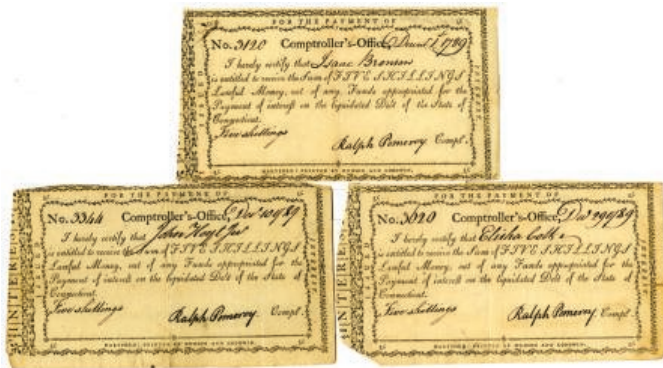 FOR THE PAYMENT OF
No. 3120 Comptroller's-Office, Decem 1st 1789
I hereby certify that Isaac Bronson
is entitled to receive the Sum of FIVE SHILLINGS
Lawful Money, out of any Funds appropriated for the
Payment of interest on the liquidated Debt of the State of
Connecticut.
Five shillings
Ralph Pomeroy Compt.
HARTFORD: PRINTED BY HUDSON AND GOODWIN.
ISSUED
INTEREST
FOR THE PAYMENT OF
No. 3344 Comptroller's-Office, Decr 10 1789
I hereby certify that John Hoyt Jur
is entitled to receive the Sum of FIVE SHILLINGS
Lawful Money, out of any Funds appropriated for the
Payment of interest on the liquidated Debt of the State of
Connecticut.
Five shillings
Ralph Pomeroy Compt.
HARTFORD: PRINTED BY HUDSON AND GOODWIN.
ISSUED
INTEREST
FOR THE PAYMENT OF
No. 3620 Comptroller's-Office, Decr 29 1789
I hereby certify that Elisha
is entitled to receive the Sum of FIVE SHILLINGS
Lawful Money, out of any Funds appropriated for the
Payment of interest on the liquidated Debt of the State of
Connecticut.
Five shillings
Ralph Pomeroy Compt.
HARTFORD: PRINTED BY HUDSON AND GOODWIN.